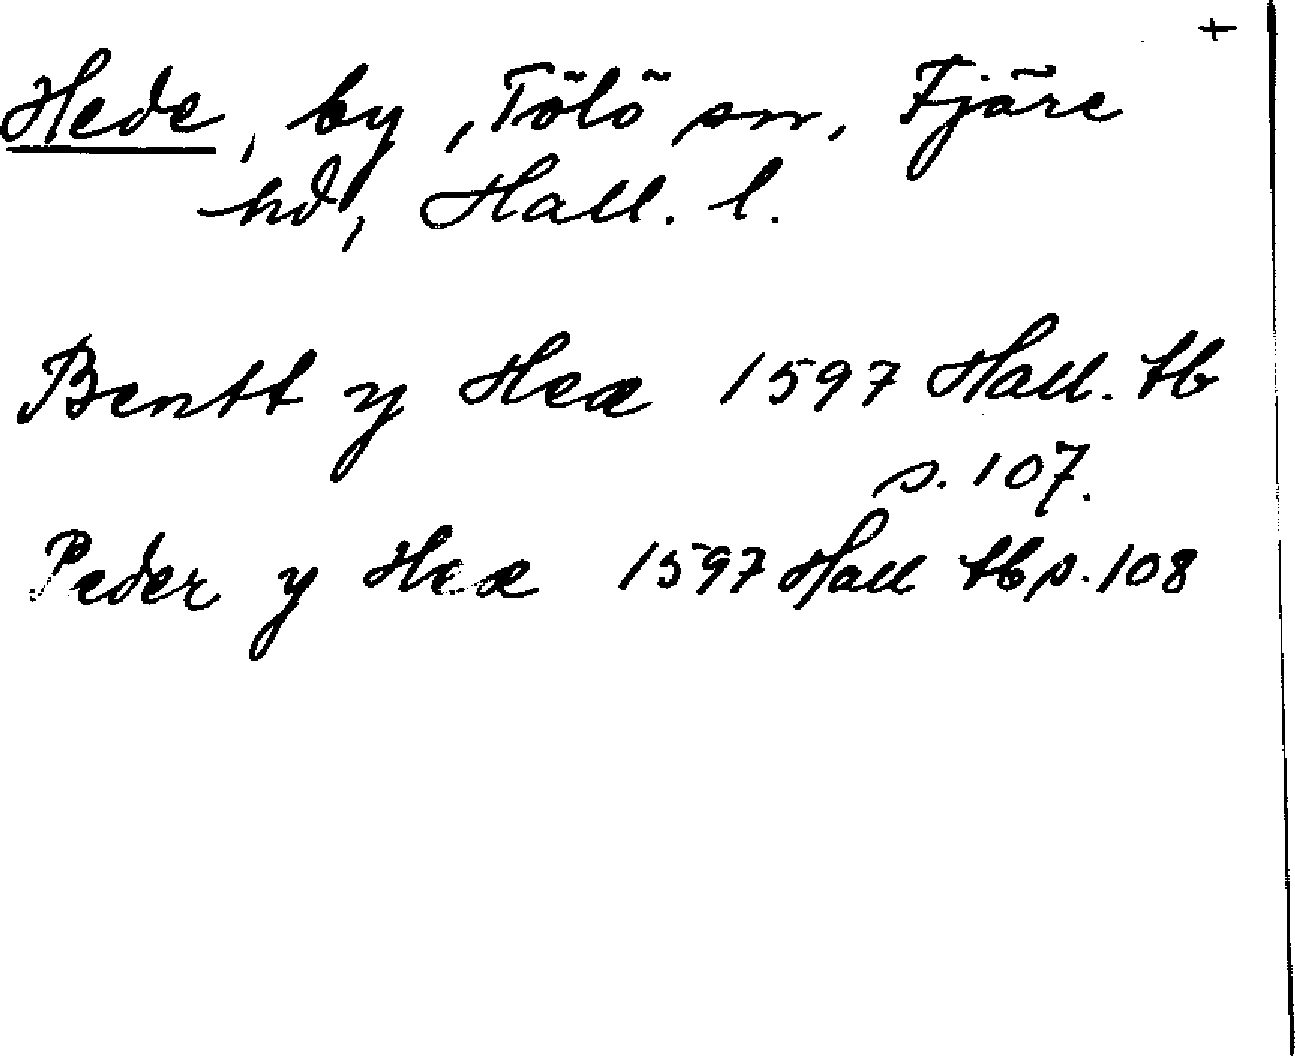 +
Hede, by, Tölö sn, Fjäre
hd, Hall. l.
Bentt y Heæ 1597 Hall. tb
s. 107.
Peder y Heæ 1597 Hall tb s. 108